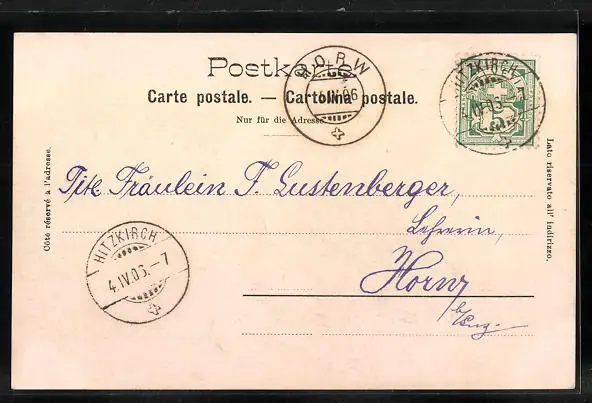 Postkarte.
Carte postale. — Cartolina postale.
Nur für die Adresse.
HORW
IV.06
HITZKIRCH
5
Côté réservé à l'adresse.
Lato riservato all' indirizzo.
Titl. Fräulein F. Lustenberger,
Lehrerin,
HITZKIRCH
4.IV.06.–7
Horw
b/